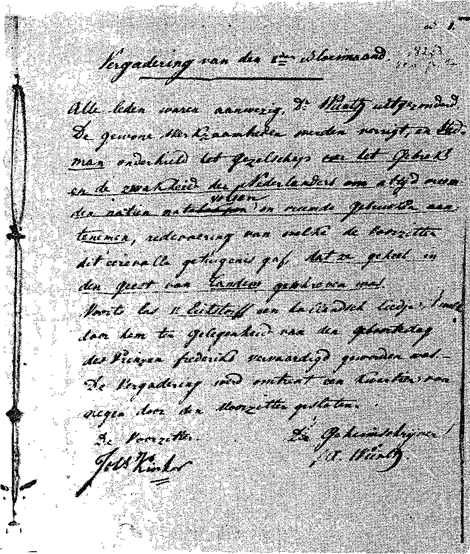 1.
Vergadering van den 1sten Bloeimaand.
Alle leden waren aanwezig, Dr. Wentz uitgezonderd.
De gewone werkzaamheden werden verrigt, en
man onderhield het gezelschap over het Gebrek
en de zwakheid der Nederlanders om altyd vreem
volgen
den natien en vreemde gebruiken aan
tenemen, redevoering van welke de voorzitter
dit eervolle getuigenis gaf dat ze geheel in
den geest van geschreven was.
Voorts las een hollandsch liedje,
door hem ter gelegenheid van den geboortedag
des Prinzen frederiks vervaardigd geworden was.
De Vergadering werd omtrent een kwartier van
negen door den Voorzitter gesloten.
De Voorzitter. De Geheimschrijver
Joh Kinker Wentz